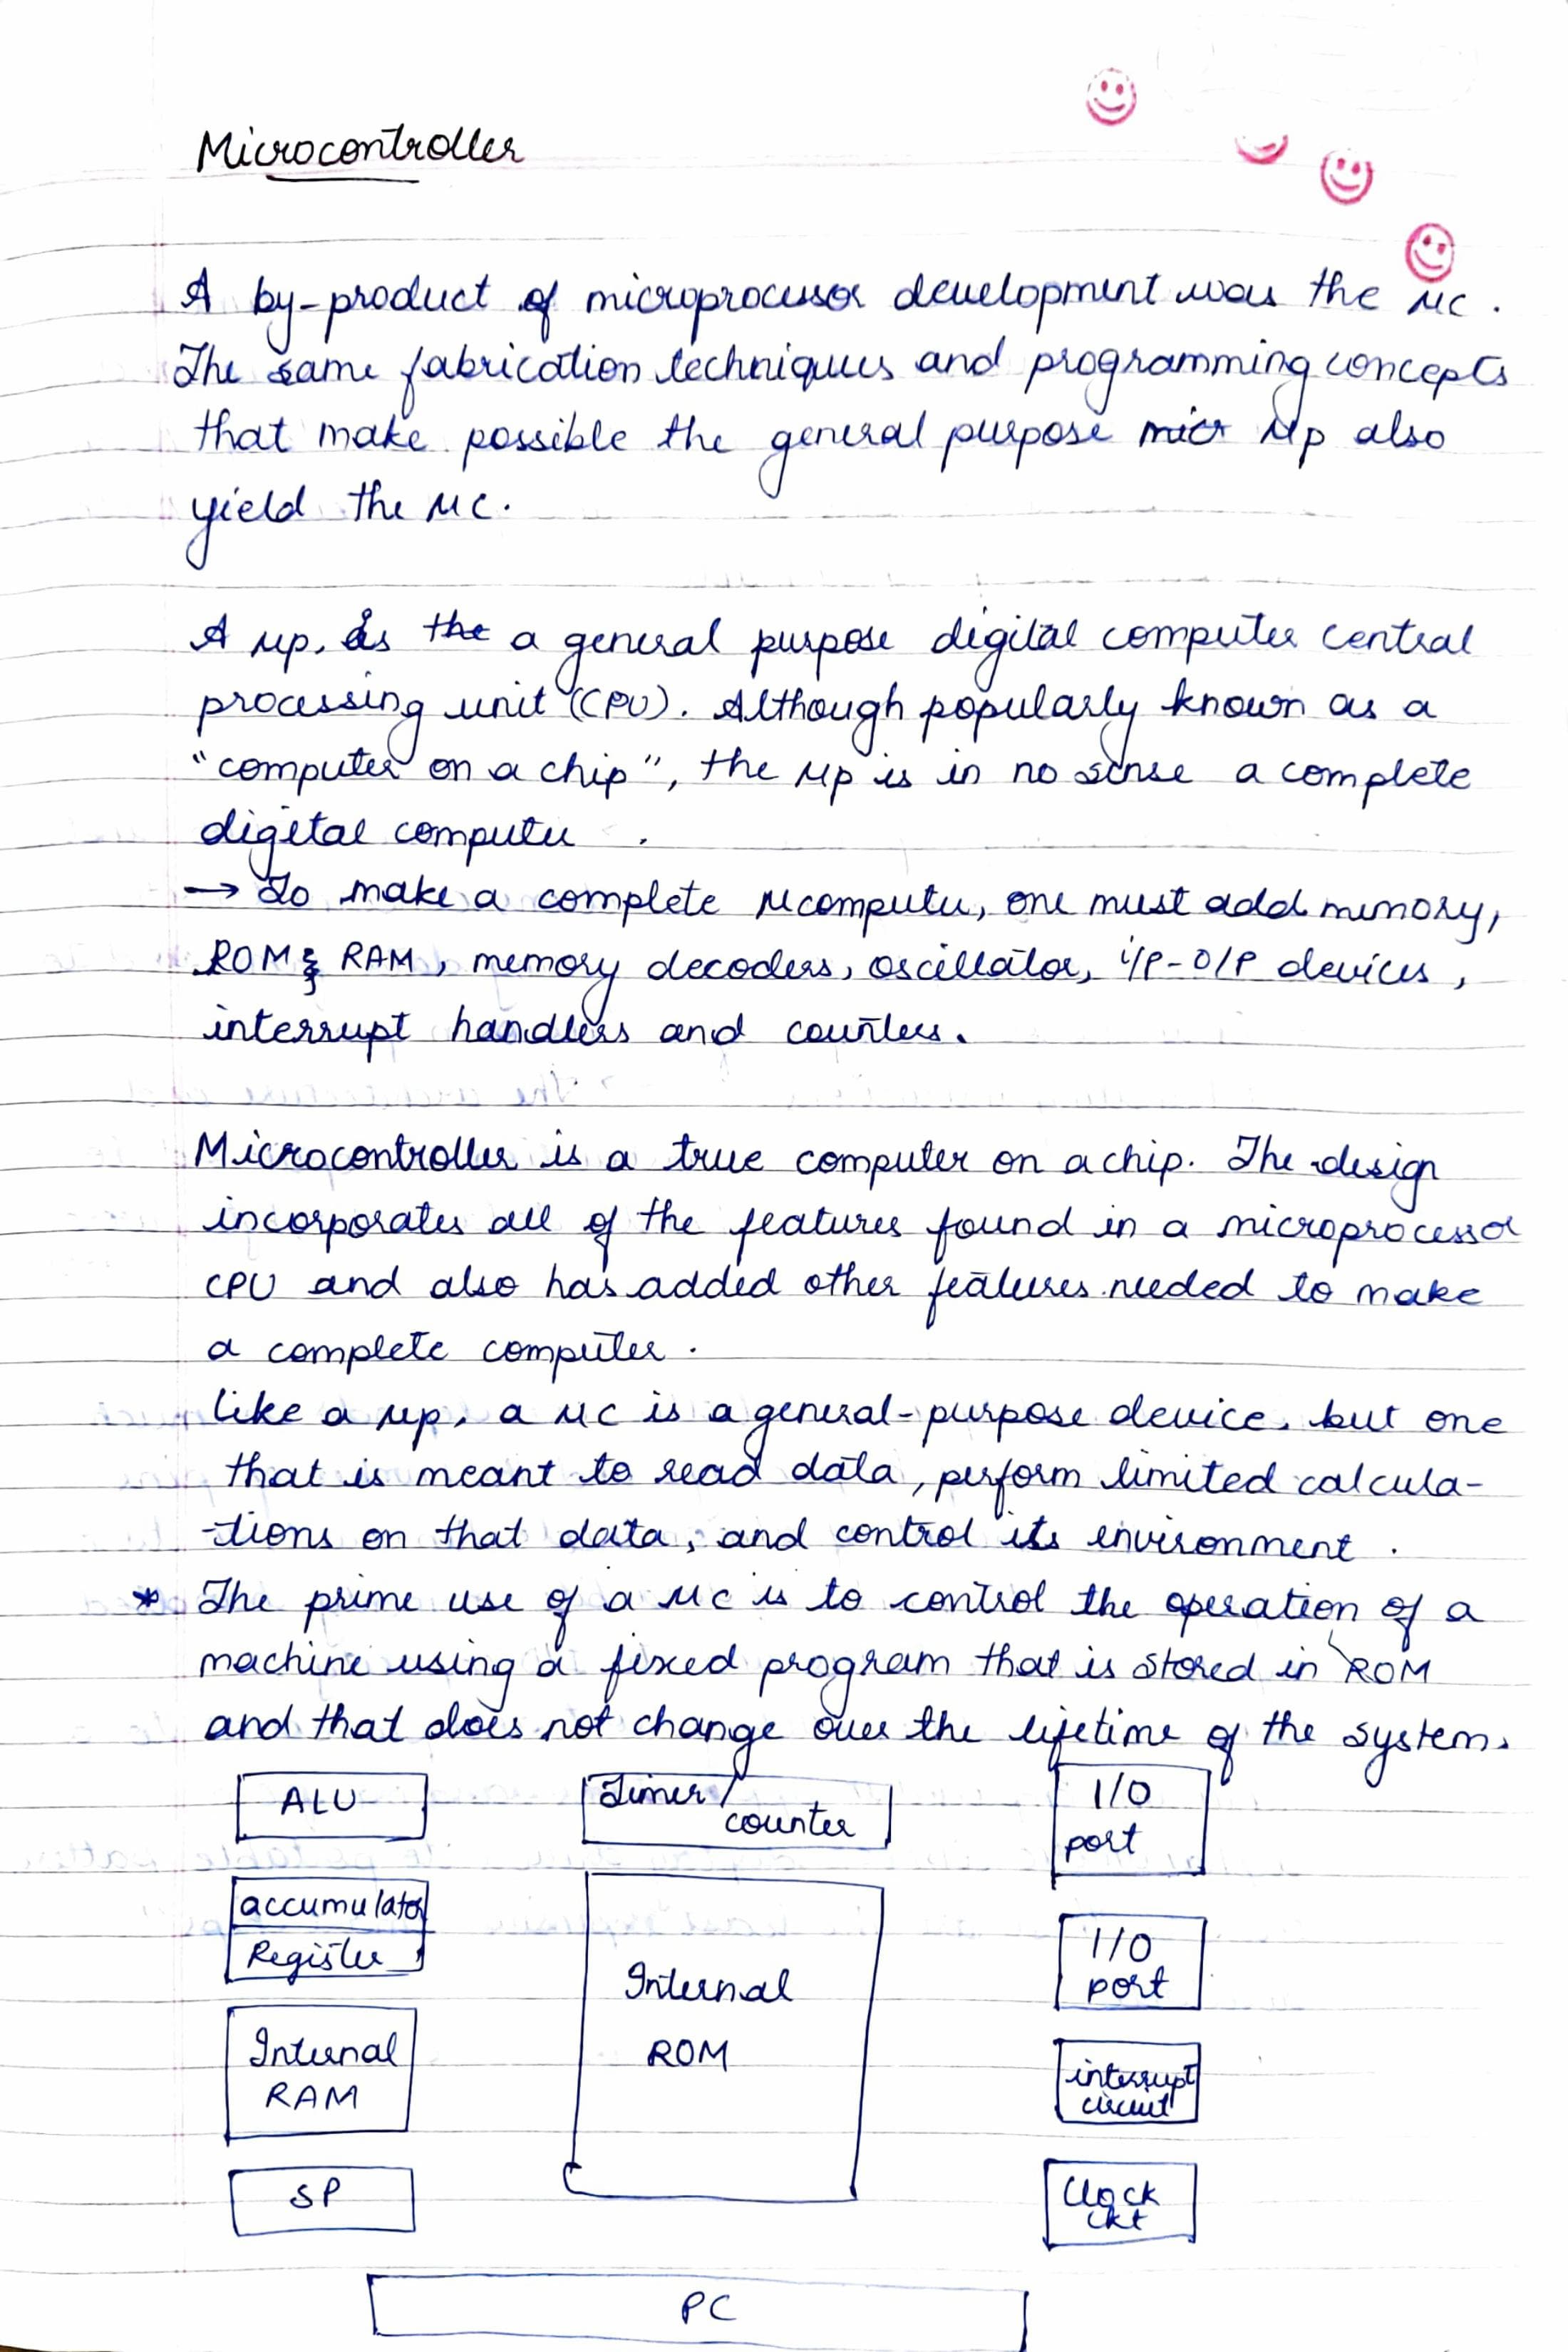 Microcontroller
A by-product of microprocessor development was the μc.
The same fabrication techniques and programming concepts
that make possible the general purpose micr μp also
yield the μc.
A μp, is the a general purpose digital computer central
processing unit (CPU). Although popularly known as a
"computer on a chip", the μp is in no sense a complete
digital computer .
→ To make a complete μcomputer, one must add memory,
ROM & RAM, memory decoders, oscillator, i/p-O/P devices,
interrupt handlers and counters.
Microcontroller is a true computer on a chip. The design
incorporates all of the features found in a microprocessor
CPU and also has added other features needed to make
a complete computer.
Like a μp, a μc is a general-purpose device, but one
that is meant to read data, perform limited calcula-
-tions on that data, and control its environment.
* The prime use of a μc is to control the operation of a
machine using a fixed program that is stored in ROM
and that does not change over the lifetime of the system.
ALU
Timer/
counter
I/O
port
accumulator
Register
Internal
ROM
I/O
port
Internal
RAM
interrupt
circuit
SP
Clock
ckt
PC